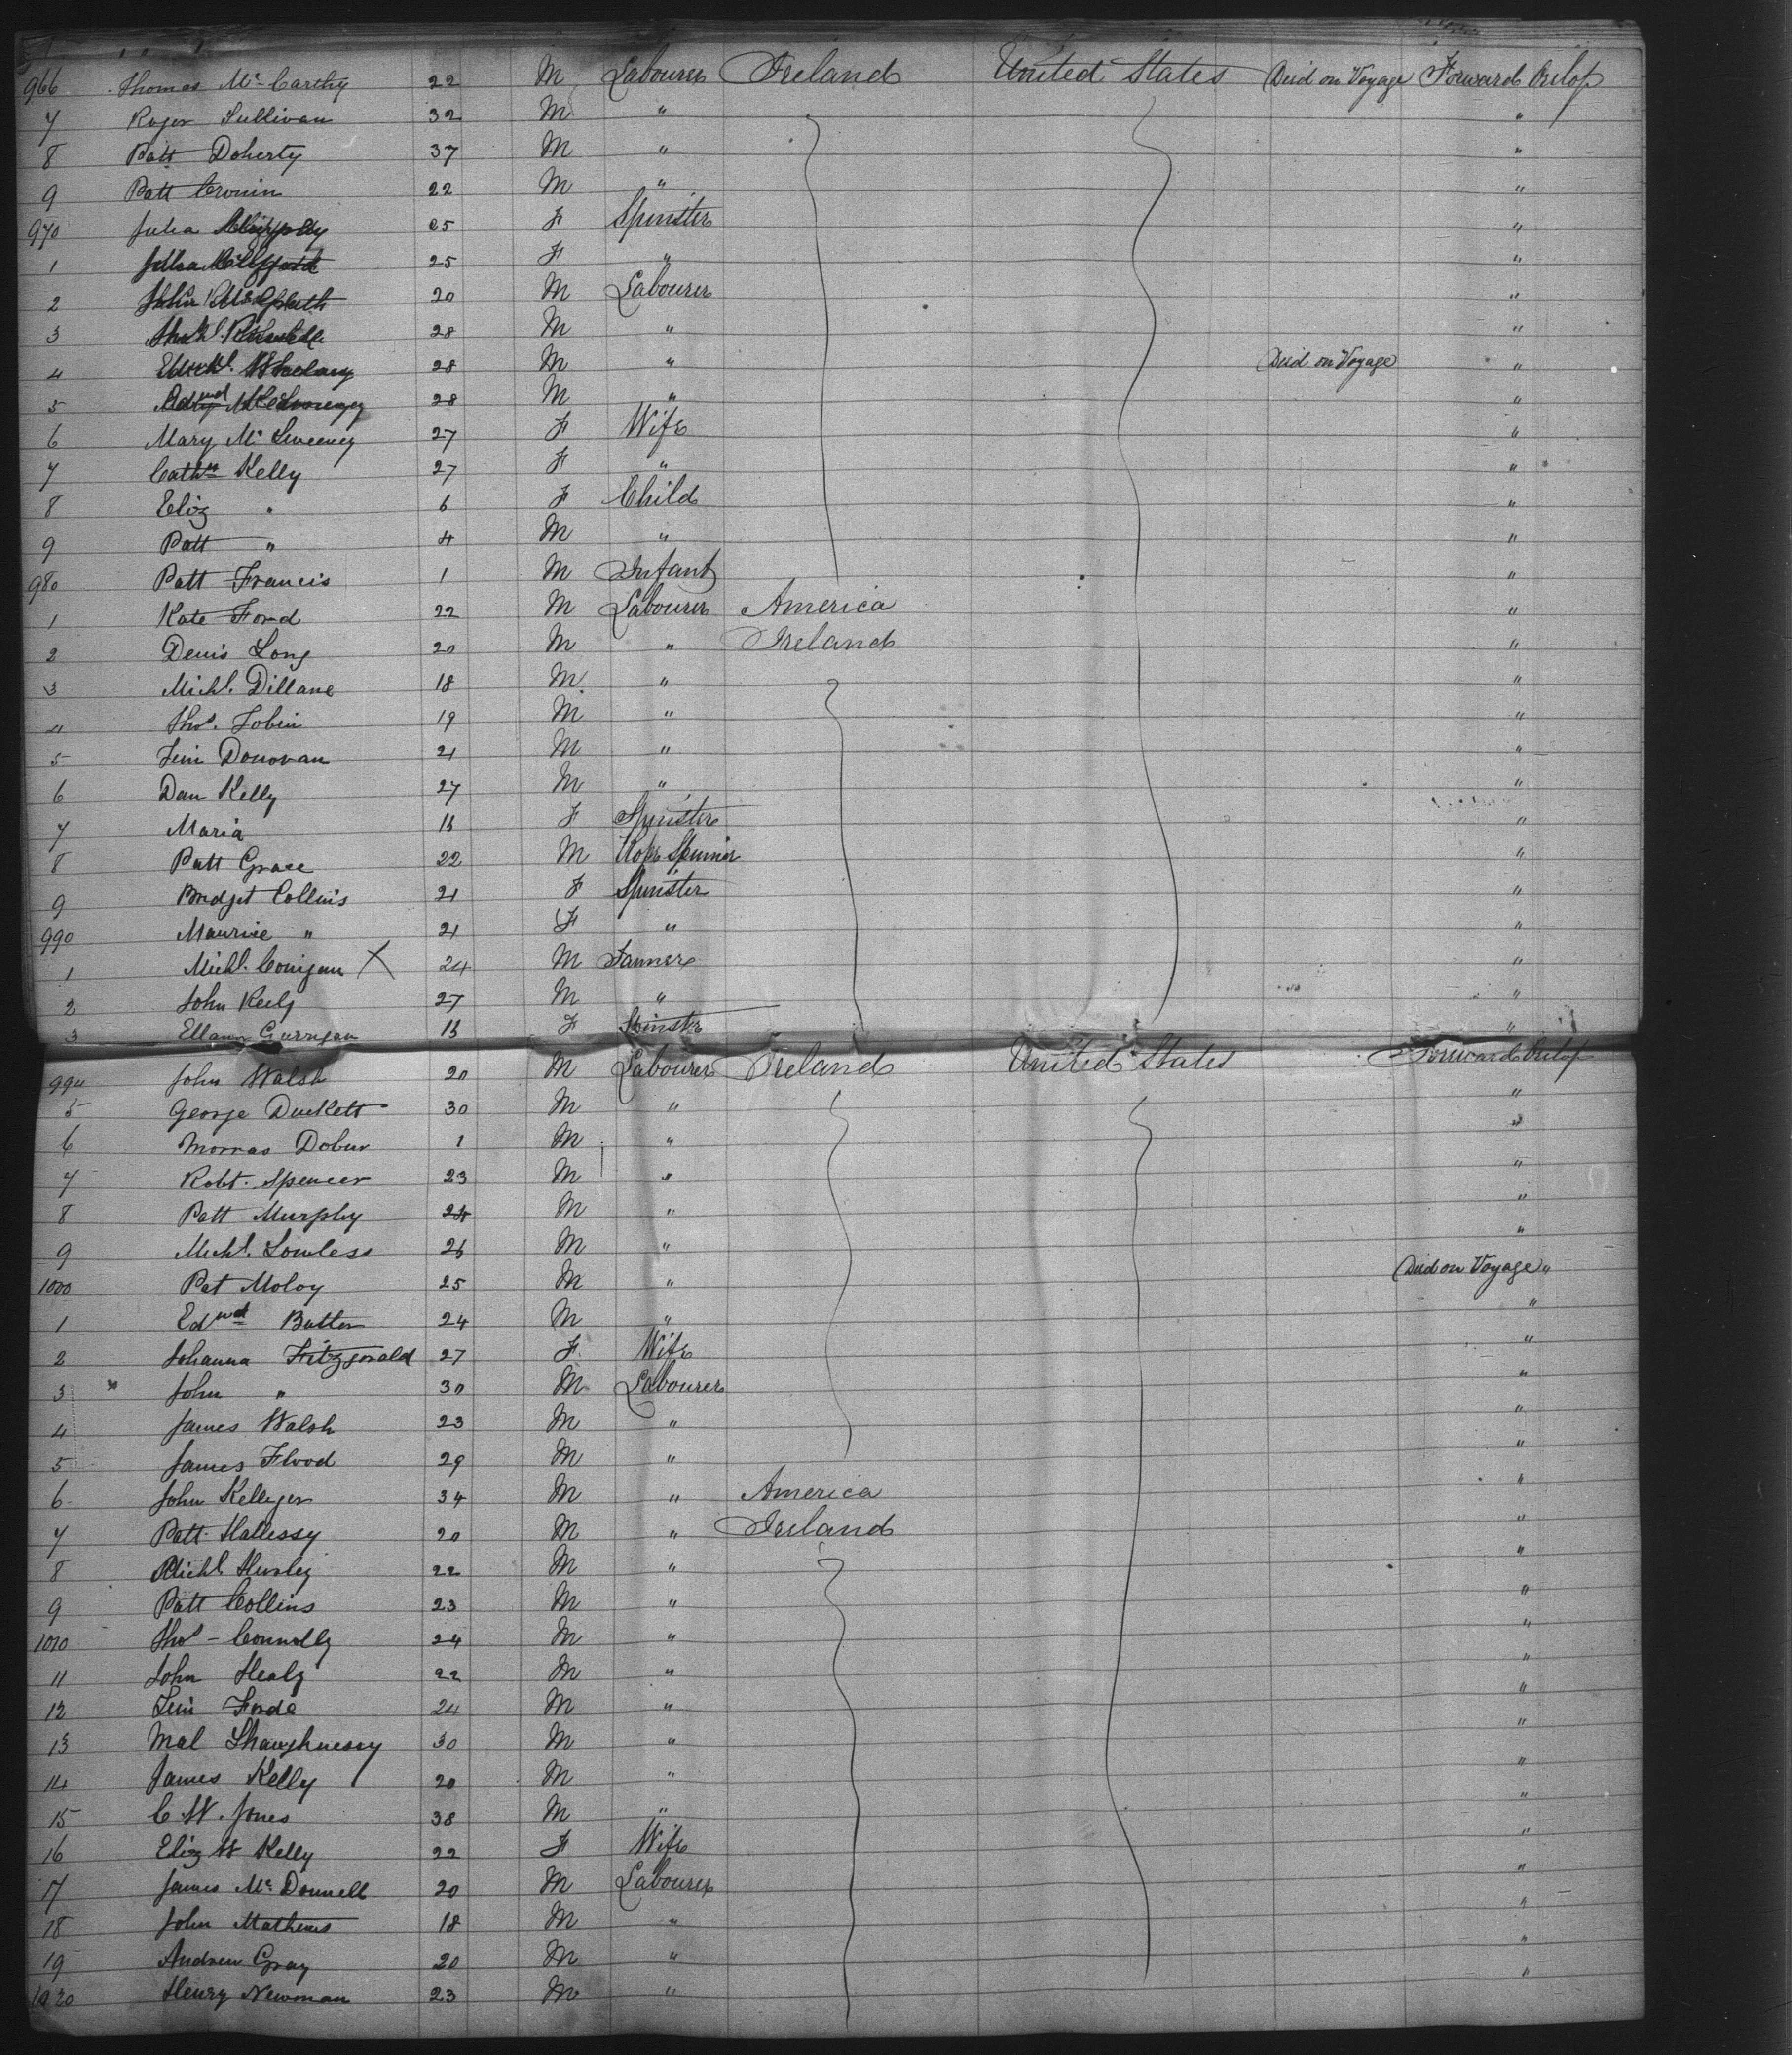 966 Thomas McCarthy 22 M Labourer Ireland United States Died on Voyage Forward Orlop
7 Roger Sullivan 32 M " "
8 Patt Doherty 37 M " "
9 Patt Cronin 22 M " "
970 Julia 25 F Spinster "
1 25 F " "
2 20 M Labourer "
3 28 M " "
4 28 M " Died on Voyage "
5 28 M " "
6 Mary McSweeney 27 F Wife "
7 Cathn Kelly 27 F " "
8 Eliz " 6 F Child "
9 Patt " 4 M " "
980 Patt Francis 1 M Infant "
1 Kate Ford 22 M Labourer America "
2 Denis Long 20 M " Ireland "
3 Michl. Dillane 18 M " "
4 Thos. Tobin 19 M " "
5 Jim Donovan 21 M " "
6 Dan Kelly 27 M " "
7 Maria F Spinster "
8 Patt Grace 22 M Rope Spinner "
9 Bridget Collins 21 F Spinster "
990 Maurice " 21 F " "
1 Michl. Corrigan X 24 M Farmer "
2 John Keely 27 M " "
3 Ellen Currigan F Spinstr "
994 John Walsh 20 M Labourer Ireland United States Forward Orlop
5 George Duckett 30 M " "
6 Dobur 1 M " "
7 Robt. Spencer 23 M " "
8 Patt Murphy 24 M " "
9 Michl. Lowless 26 M " "
1000 Pat Moloy 25 M " Died on Voyage "
1 Edwd Butter 24 M " "
2 Johanna Fitzgerald 27 F Wife "
3 John " 30 M Labourer "
4 James Walsh 23 M " "
5 James Flood 29 M " "
6 John Kelleger 34 M " America "
7 Patt Hallessy 20 M " Ireland "
8 Michl. Hurley 22 M " "
9 Patt Collins 23 M " "
1010 Thos - Connolly 24 M " "
11 John Healy 22 M " "
12 Jim Forde 24 M " "
13 Mal Shaughnessy 30 M " "
14 James Kelly 20 M " "
15 C. W. Jones 38 M " "
16 Eliz W Kelly 22 F Wife "
17 James McDonnell 20 M Labourer "
18 John Mathews 18 M " "
19 Andrew Gray 20 M " "
1020 Henry Newman 23 M " "